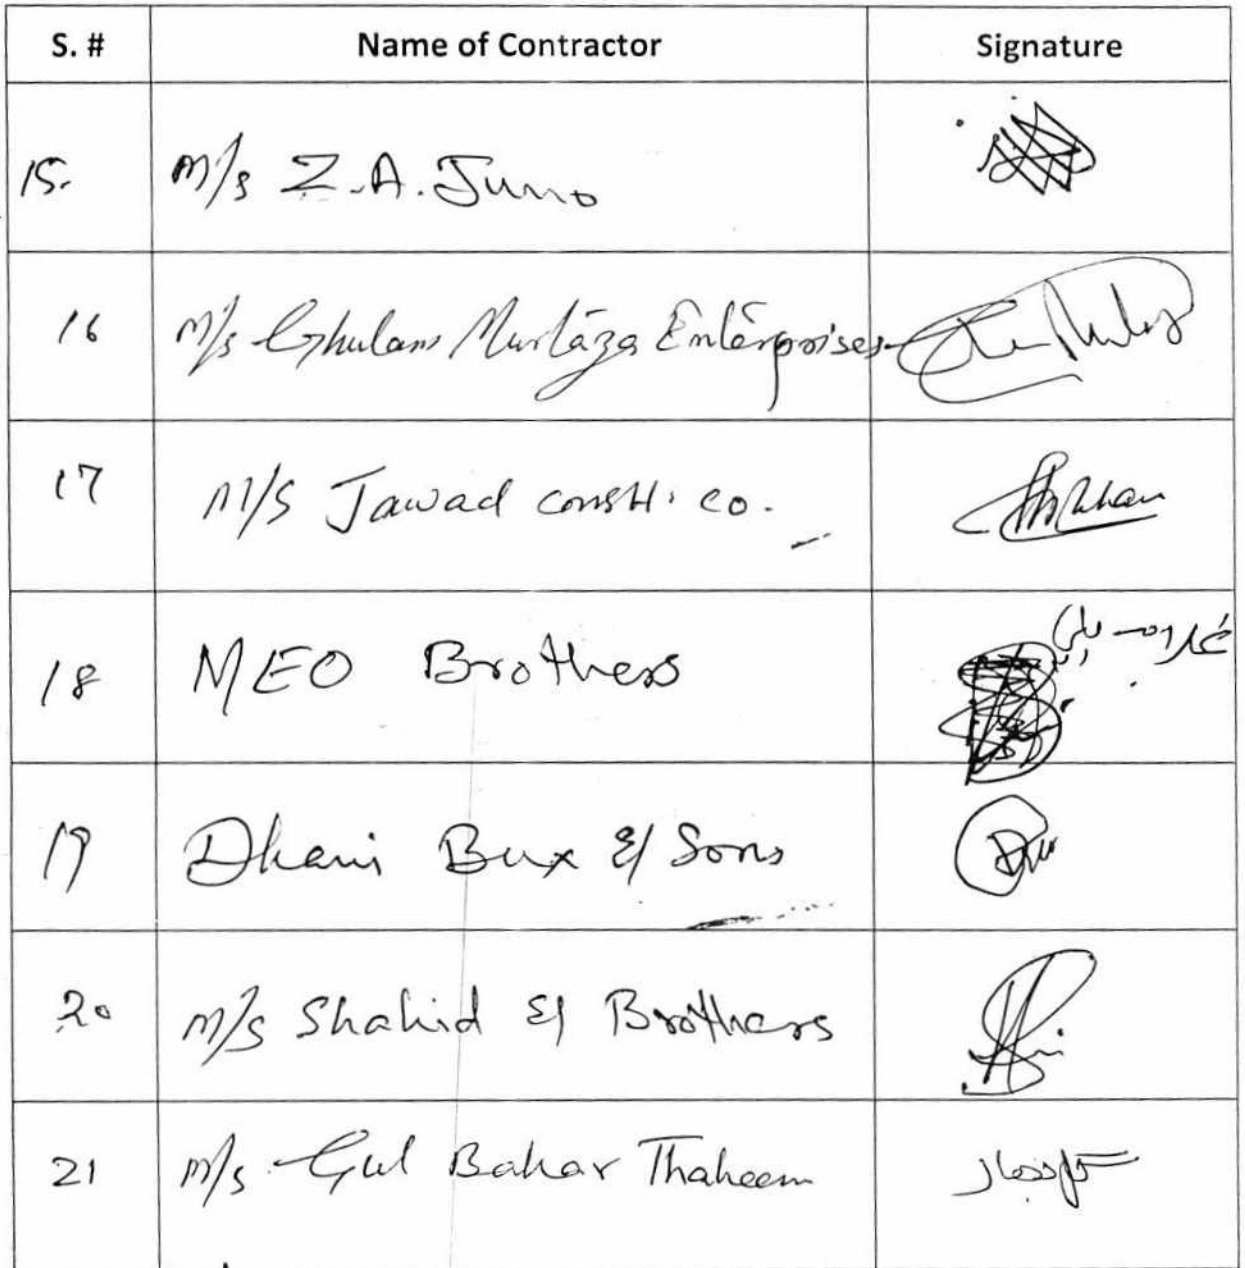 S. # Name of Contractor Signature
15. M/s Z.A. Juno
16 M/s Ghulam Murtaza Enterprises
17 M/S Jawad constt. co.
18 MEO Brothers
19 Dhani Bux & Sons
20 M/S Shahid & Brothers
21 M/s Gul Bahar Thaheem